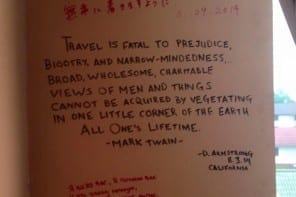 無事に着きますように
5.09.2014
TRAVEL IS FATAL TO PREJUDICE,
BIGOTRY, AND NARROW-MINDEDNESS...
BROAD, WHOLESOME, CHARITABLE
VIEWS OF MEN AND THINGS
CANNOT BE ACQUIRED BY VEGETATING
IN ONE LITTLE CORNER OF THE EARTH
ALL ONE'S LIFETIME.
-MARK TWAIN-
-D. ARMSTRONG
8.3.14
CALIFORNIA